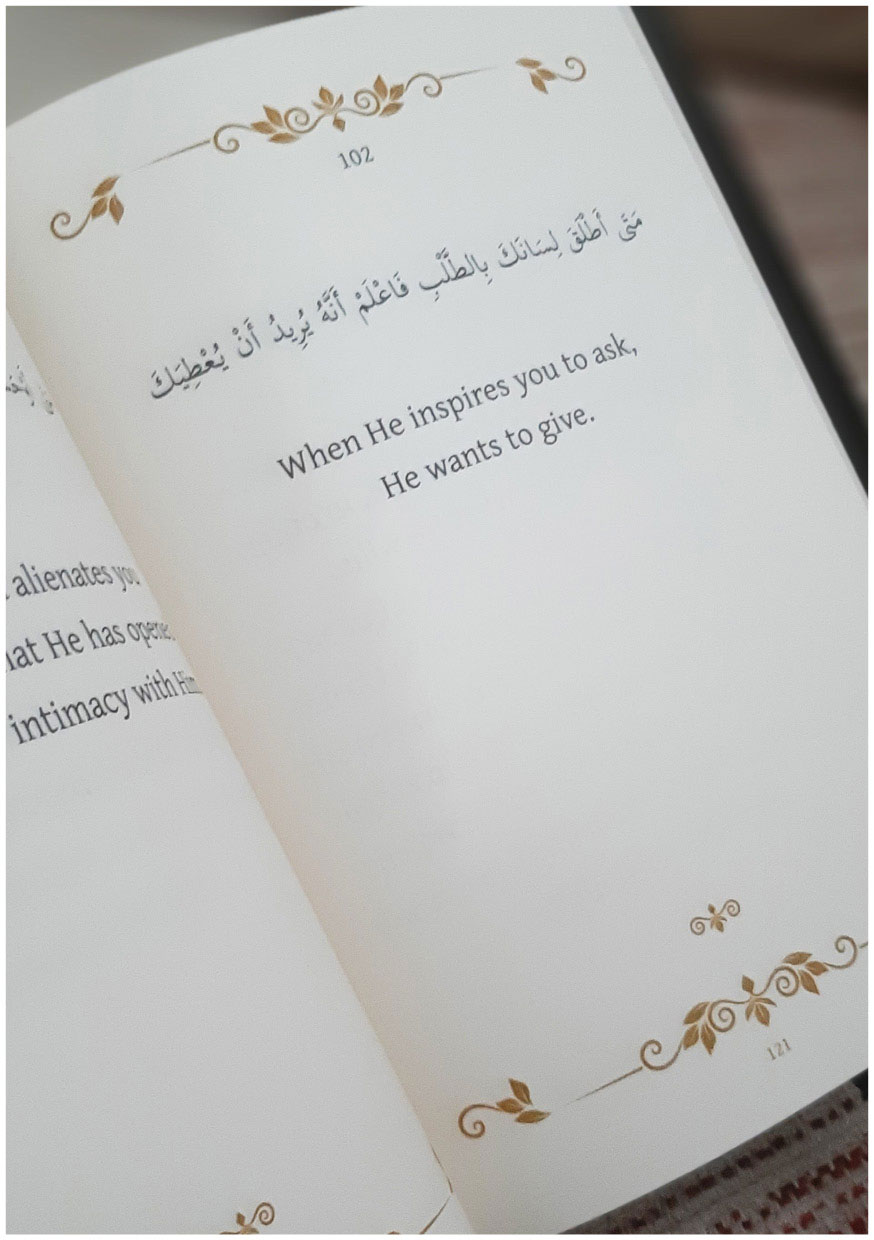 alienates you
He has
intimacy with Him
102
مَتَى أَطْلَقَ لِسَانَكَ بِالطَّلَبِ فَاعْلَمْ أَنَّهُ يُرِيدُ أَنْ يُعْطِيَكَ
When He inspires you to ask,
He wants to give.
121